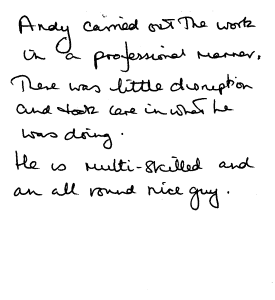 Andy carried out the work
in a professional manner.
There was little disruption
and took care in what he
was doing.
He is multi-skilled and
an all round nice guy.